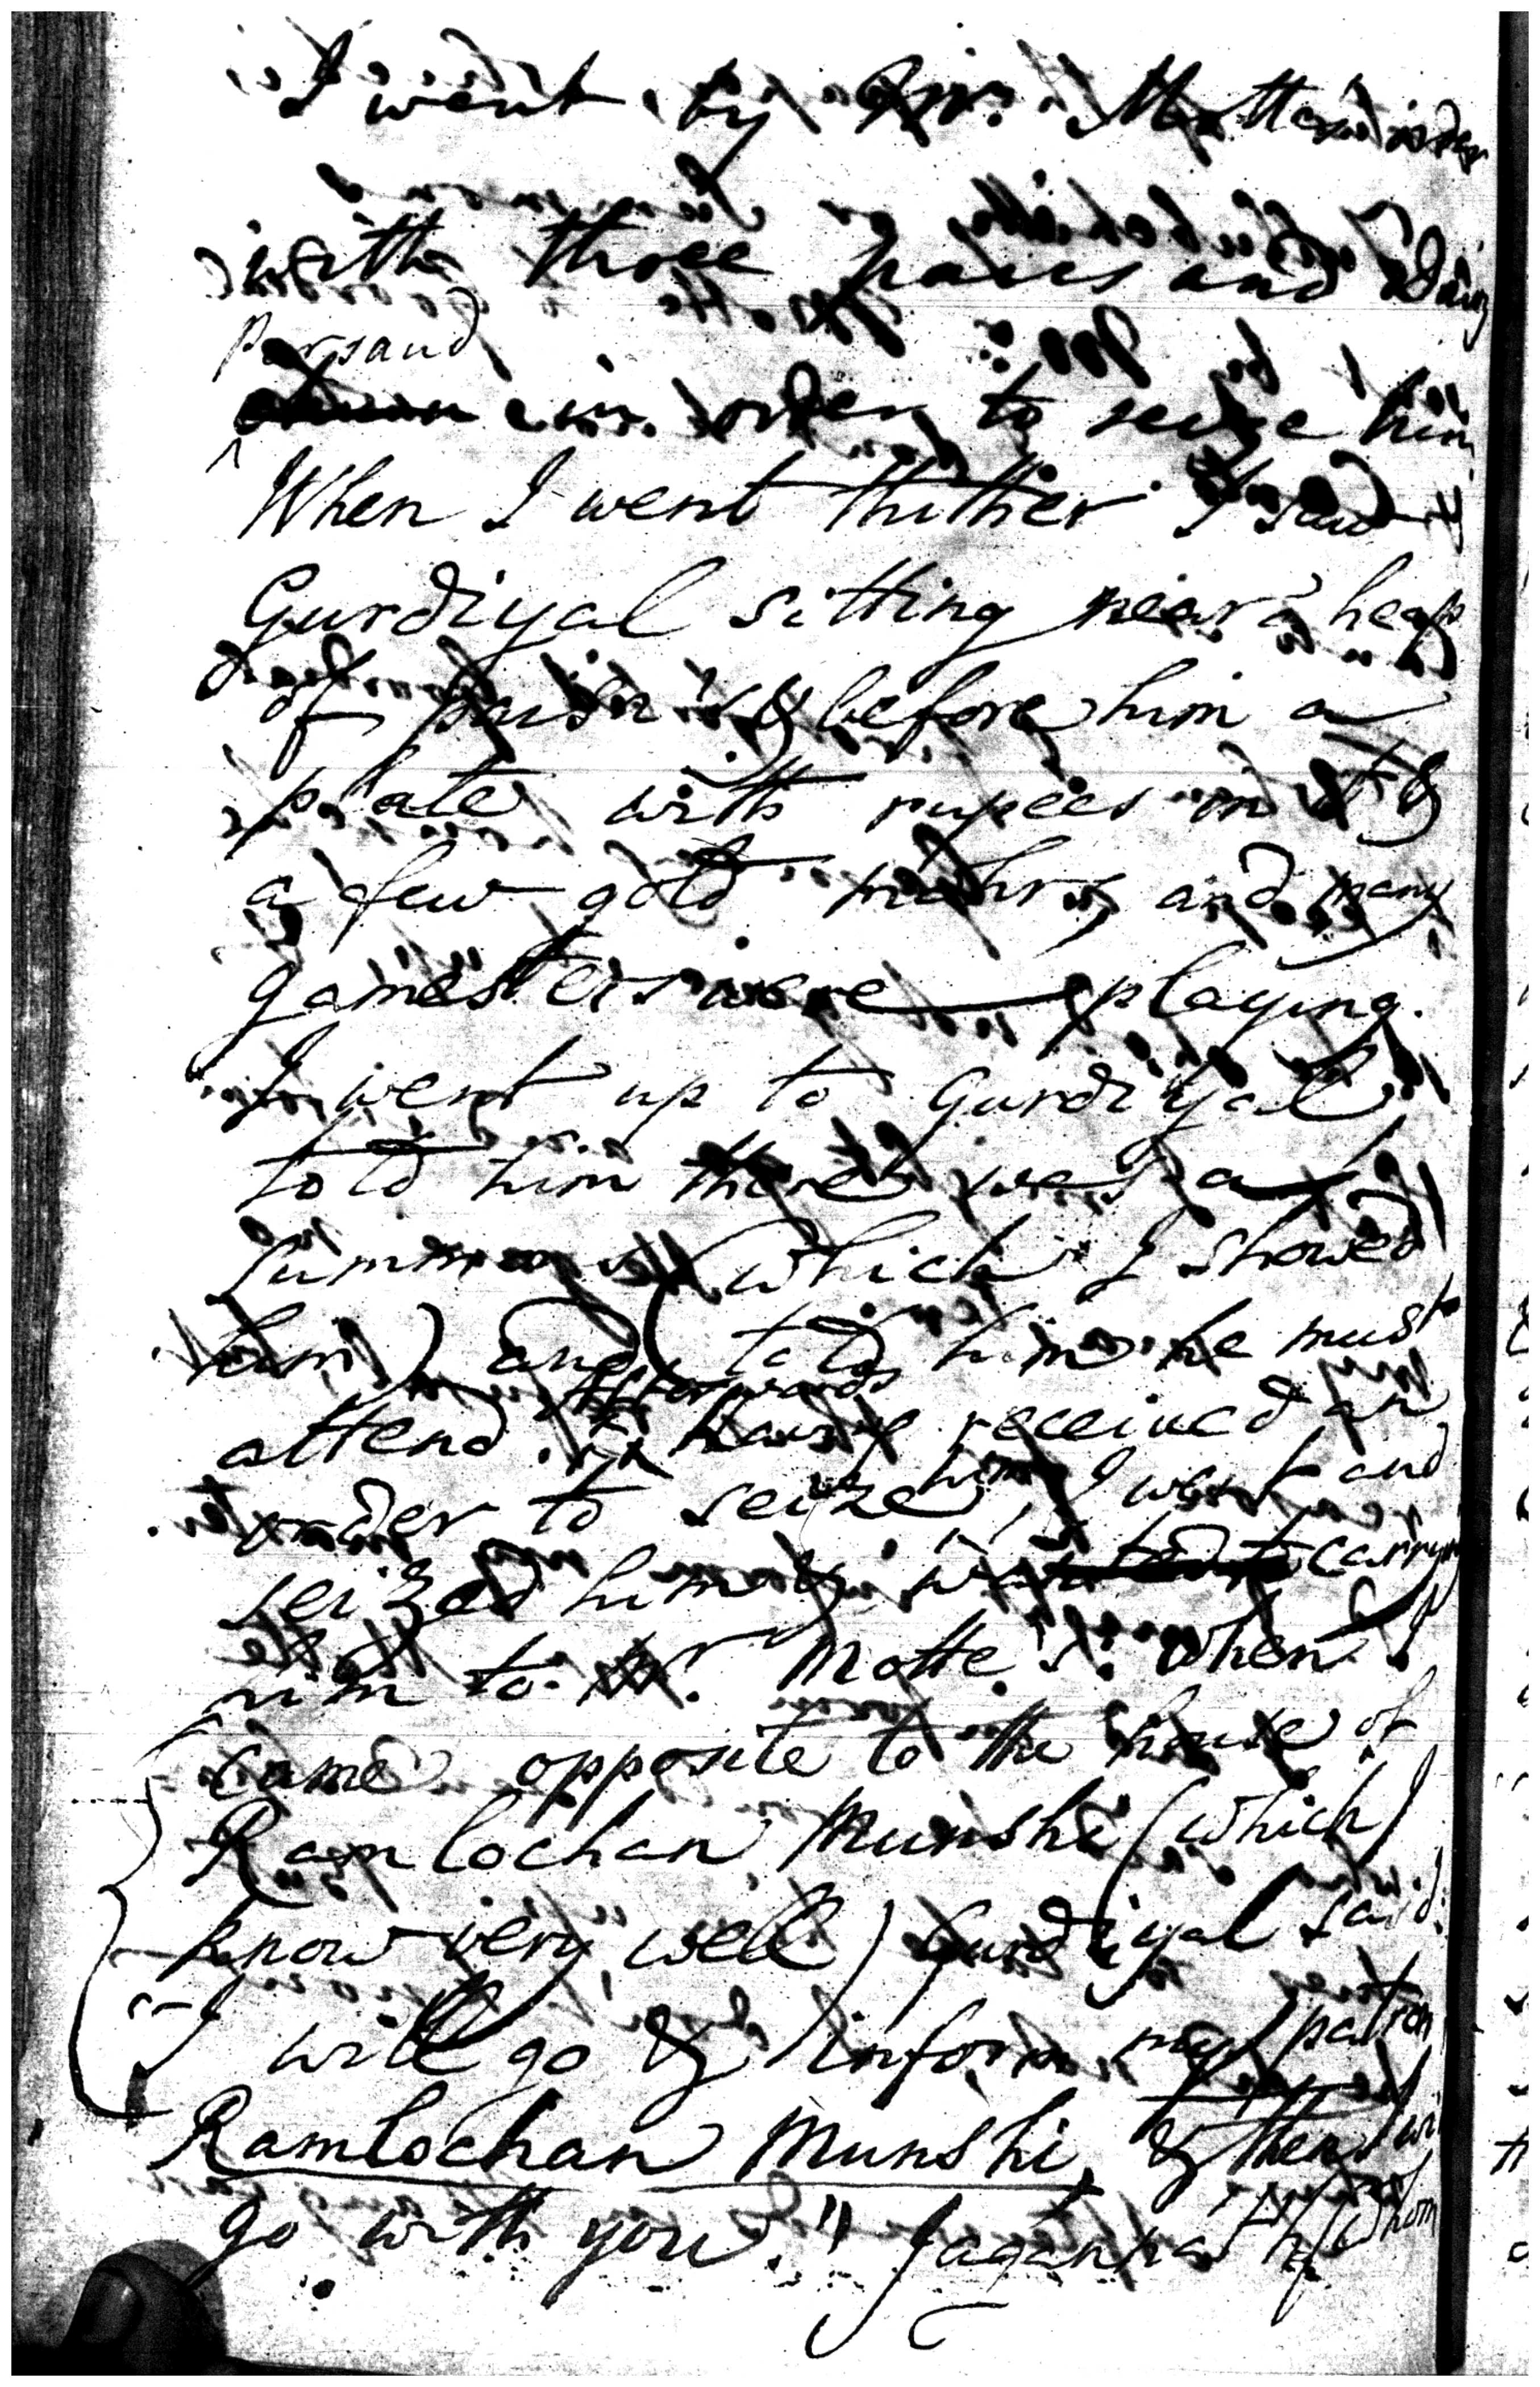 I went, by Mr. Motte's order
with three paiks and Dain
Persaud
in order to seize him
When I went thither I saw
Gurdiyal sitting near a heap
of paisa's & before him a
plate with rupees in it &
a few gold mohrs, and many
gamesters were playing.
I went up to Gurdiyal
told him there was a
summons (which I showed
him) and told him he must
attend. Afterwards having received an
order to seize him, I went and
seized him & carrying
him to Mr. Motte's. When I
came opposite to the house of
Ramlochan Munshi (which I
know very well) Gurdiyal said:
"I will go & inform my patron
Ramlochan Munshi, & then I will
go with you." Jagannath (whom